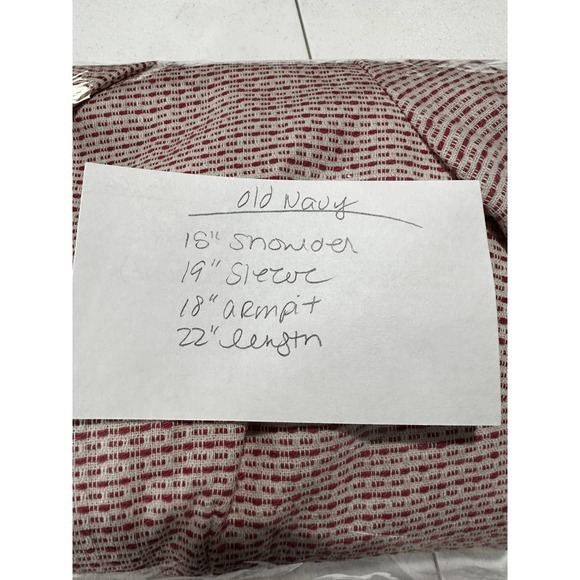 old Navy
15" Shoulder
19" Sleeve
18" armpit
22" length